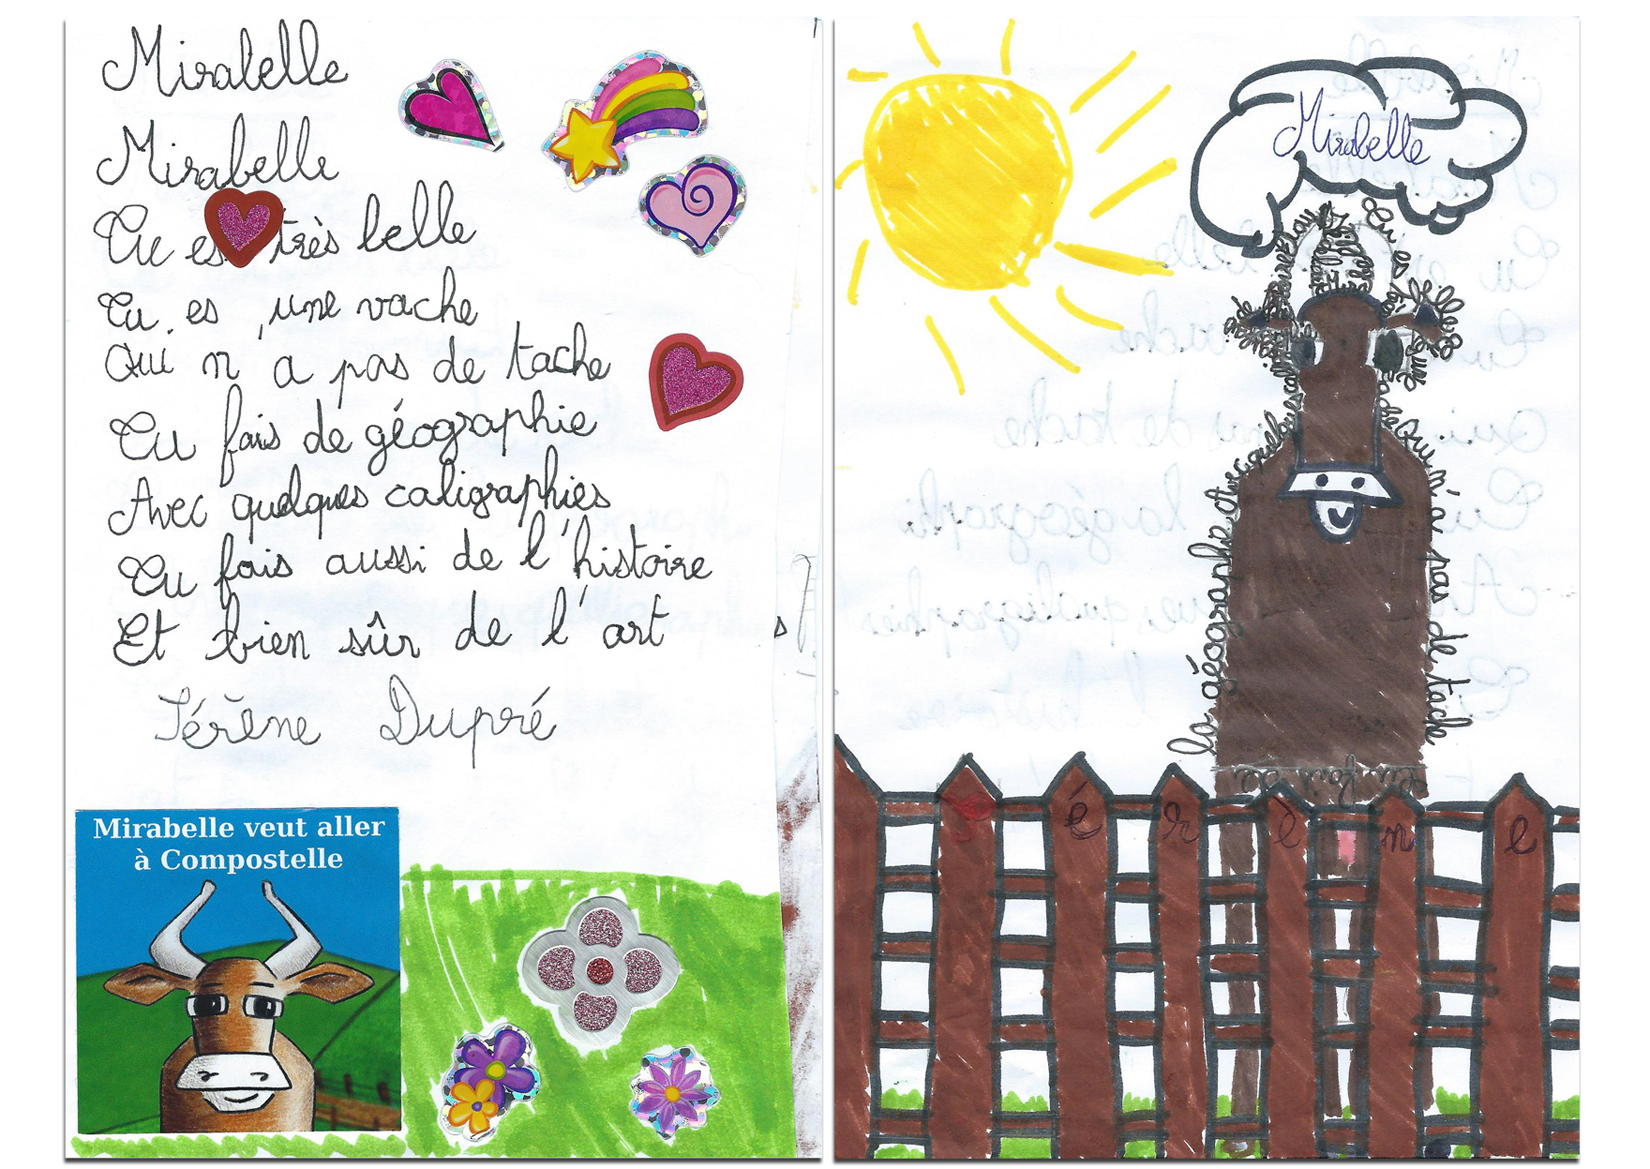 Mirabelle
Mirabelle
Tu es très belle
Tu es une vache
Qui n'a pas de tache
Tu fais de géographie
Avec quelques caligraphies
Tu fais aussi de l'histoire
Et bien sûr de l'art
Jérène Dupré
Mirabelle veut aller
à Compostelle
Mirabelle
Tu es très belle
une
Qui n'a pas de tache
Tu fais de
la géographie Avec quelques
J é r è n e